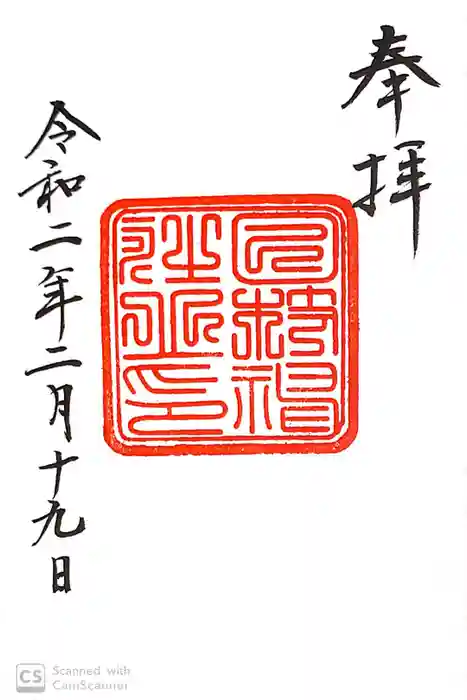 奉拝
令和二年二月十九日
CS Scanned with
CamScanner